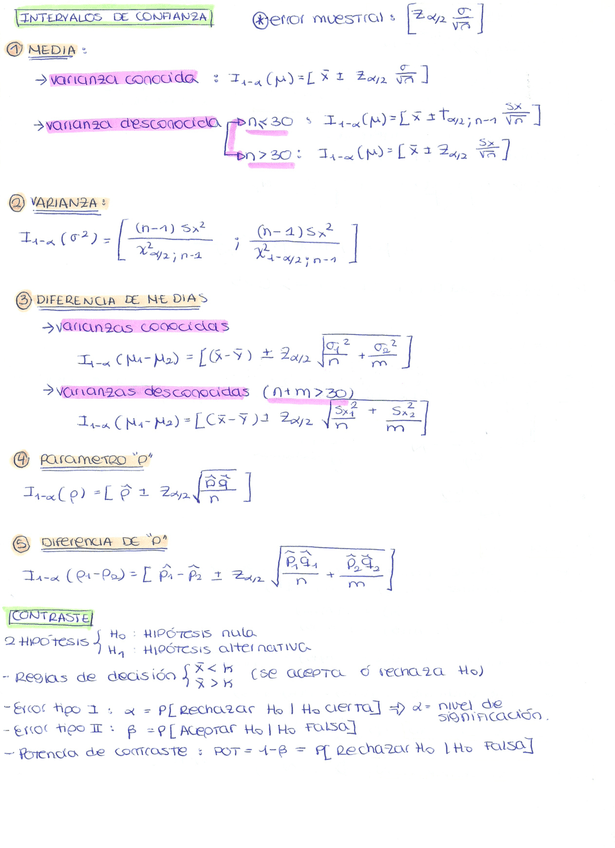 INTERVALOS DE CONFIANZA
* error muestral : [Zα/2 σ/√n]
① MEDIA :
→ varianza conocida : I1-α (μ) = [x̄ ± Zα/2 σ/√n]
→ varianza desconocida → n≤30 : I1-α (μ) = [x̄ ± Tα/2; n-1 Sx/√n]
→ n>30 : I1-α (μ) = [x̄ ± Zα/2 Sx/√n]
② VARIANZA :
I1-α (σ²) = [(n-1) Sx² / χ²α/2; n-1 ; (n-1) Sx² / χ²1-α/2; n-1]
③ DIFERENCIA DE MEDIAS
→ varianzas conocidas
I1-α (μ1-μ2) = [(x̄-ȳ) ± Zα/2 √(σ1²/n + σ2²/m)]
→ varianzas desconocidas (n+m>30)
I1-α (μ1-μ2) = [(x̄-ȳ) ± Zα/2 √(Sx1²/n + Sx2²/m)]
④ parametro "p"
I1-α (p) = [p̂ ± Zα/2 √(p̂q̂/n)]
⑤ Diferencia DE "p"
I1-α (p1-p2) = [p̂1-p̂2 ± Zα/2 √(p̂1q̂1/n + p̂2q̂2/m)]
CONTRASTE
2 HIPÓTESIS { H0 : HIPÓTESIS nula
H1 : HIPÓTESIS alternativa
- Reglas de decisión { x̄ < k (se acepta ó rechaza H0)
x̄ > k
- Error tipo I : α = P[Rechazar H0 | H0 cierta] ⇒ α = nivel de
significación.
- Error tipo II : β = P[Aceptar H0 | H0 Falsa]
- Potencia de contraste : POT = 1-β = P[Rechazar H0 | H0 Falsa]